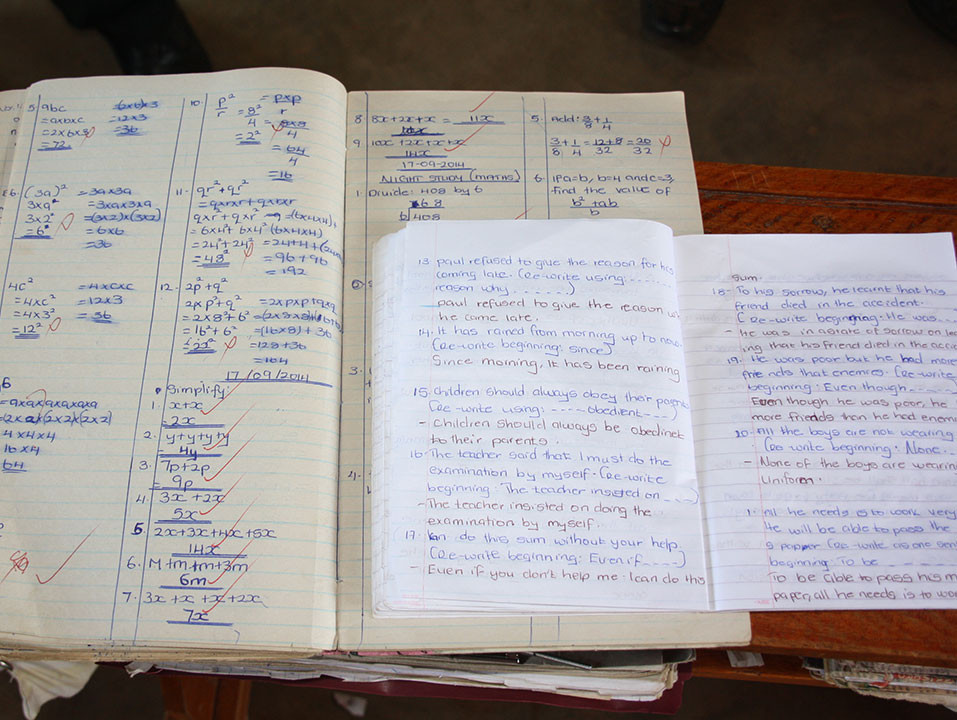 5 9bc
= axbxc
= 2x6x3
= 72
(6x6)x3
= 12x3
= 36
86. (3a)²
3xa²
3x2²
= 6²
= 3ax3a
= 3xax3xa
= (3x2)x(3x2)
= 6x6
= 36
4c²
= 4xc²
= 4x3²
= 12²
= 4xcxc
= 12x3
= 36
6
= axaxaxaxaxa
4x4x4
16x4
64
10. p²
r
= 8²
4
= 2²
= pxp
r
= 8x8
4
= 64
4
= 16
11. qr²+qr²
qxr²+qxr²
= 6x4²+6x4²
= 24²+24²
= 48²
= qxrxr+qxrxr
= (6x4x4)+
(6x4x4)
= 96+96
= 192
12. 2p²+q²
2xp²+q²
= 2x8²+6²
= 16²+6²
= 22²
= 2xpxp+qxq
= (16x8)+36
= 128+36
= 164
17/09/2014
Simplify:
1. x+x
= 2x
2. y+y+y+y
= 4y
3. 7p+2p
= 9p
4. 3x+2x
5x
5. 2x+3x+4x+5x
14x
6. M+m+m+3m
6m
7. 3x+x+x+2x
7x
8 8x+2x+x = 11x
9 10x+2x+x+x
14x
17-09-2014
NIGHT STUDY (MATHS)
1. Divide: 408 by 6
68
6 408
3.
4.
5. Add: 3/8 + 1/4
3/8 + 1/4 = 12+8/32 = 20/32
6. If a=b, b=4 and c=3,
find the value of
b²+ab
b
13 paul refused to give the reason for his
coming late. (Re-write using: ........
reason why. ......)
paul refused to give the reason
he came late.
14. It has rained from morning up to now
(Re-write beginning: since)
Since morning, it has been raining
15. children should always obey their parents
(Re-write using: ---- obedient ---
- children should always be obedinet
to their parents.
16. The teacher said that I must do the
examination by myself. (Re-write
beginning: The teacher insisted on ---)
- The teacher insisted on doing the
examination by myself.
17. I can do this sum without your help.
(Re-write beginning: Even if ----)
- Even if you don't help me. I can do this
sum.
18. To his sorrow, he learnt that his
friend died in the accident.
(Re write beginning: He was ...
- He was in a state of sorrow on
ing that his friend died in the
19. He was poor but he had more
friends that enemies. (Re-write
beginning: Even though .....
Even though he was poor, he
more friends than he had
20. All the boys are not wearing
(Re write beginning: None. --
- None of the boys are wearing
uniform.
1. all he needs is to work very
He will be able to pass the
paper (Re-write as one
beginning: To be ---
To be able to pass his
paper, all he needs is to